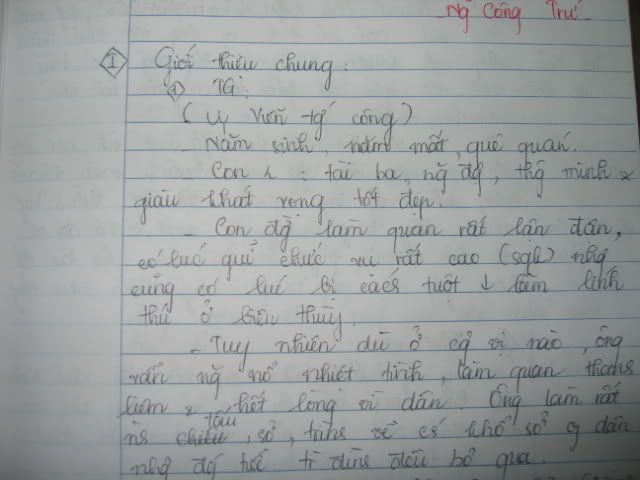 Ng Công Trứ
I Giới thiệu chung:
1 TG:
(Uy Viễn tg công)
- Năm sinh, năm mất, quê quán.
- Con ng : tài ba, ng độ, thg minh &
giàu khát vọng tốt đẹp.
- Con đg làm quan rất lận đận,
có lúc giữ chức vụ rất cao (sgk) nhg
cũng có lúc bị cách tuột ↓ làm lính
thú ở biên thùy.
- Tuy nhiên dù ở vị nào, ông
vẫn nổ nhiệt tình, làm quan thanh
liêm & hết lòng vì dân. Ông làm rất
tấu
sớ, trình về khổ sở dân
nhg đều bỏ qua.